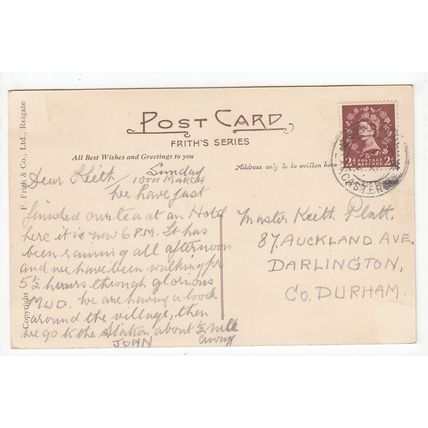 POST CARD
FRITH'S SERIES
All Best Wishes and Greetings to you
Address only to be written here
Copyright F. Frith & Co., Ltd., Reigate
Sunday
Dear Keith, 10TH MARCH
We have just
finished our tea at an Hotel
here it is now 6 P.M. It has
been raining all afternoon
and we have been walking for
5½ hours through glorious
MUD. We are having a look
around the village, then
we go to the Station about ½ mile
away
JOHN
Master Keith Platt.
87, AUCKLAND AVE.
DARLINGTON,
CO. DURHAM.
2D POSTAGE REVENUE 2D
CASTER